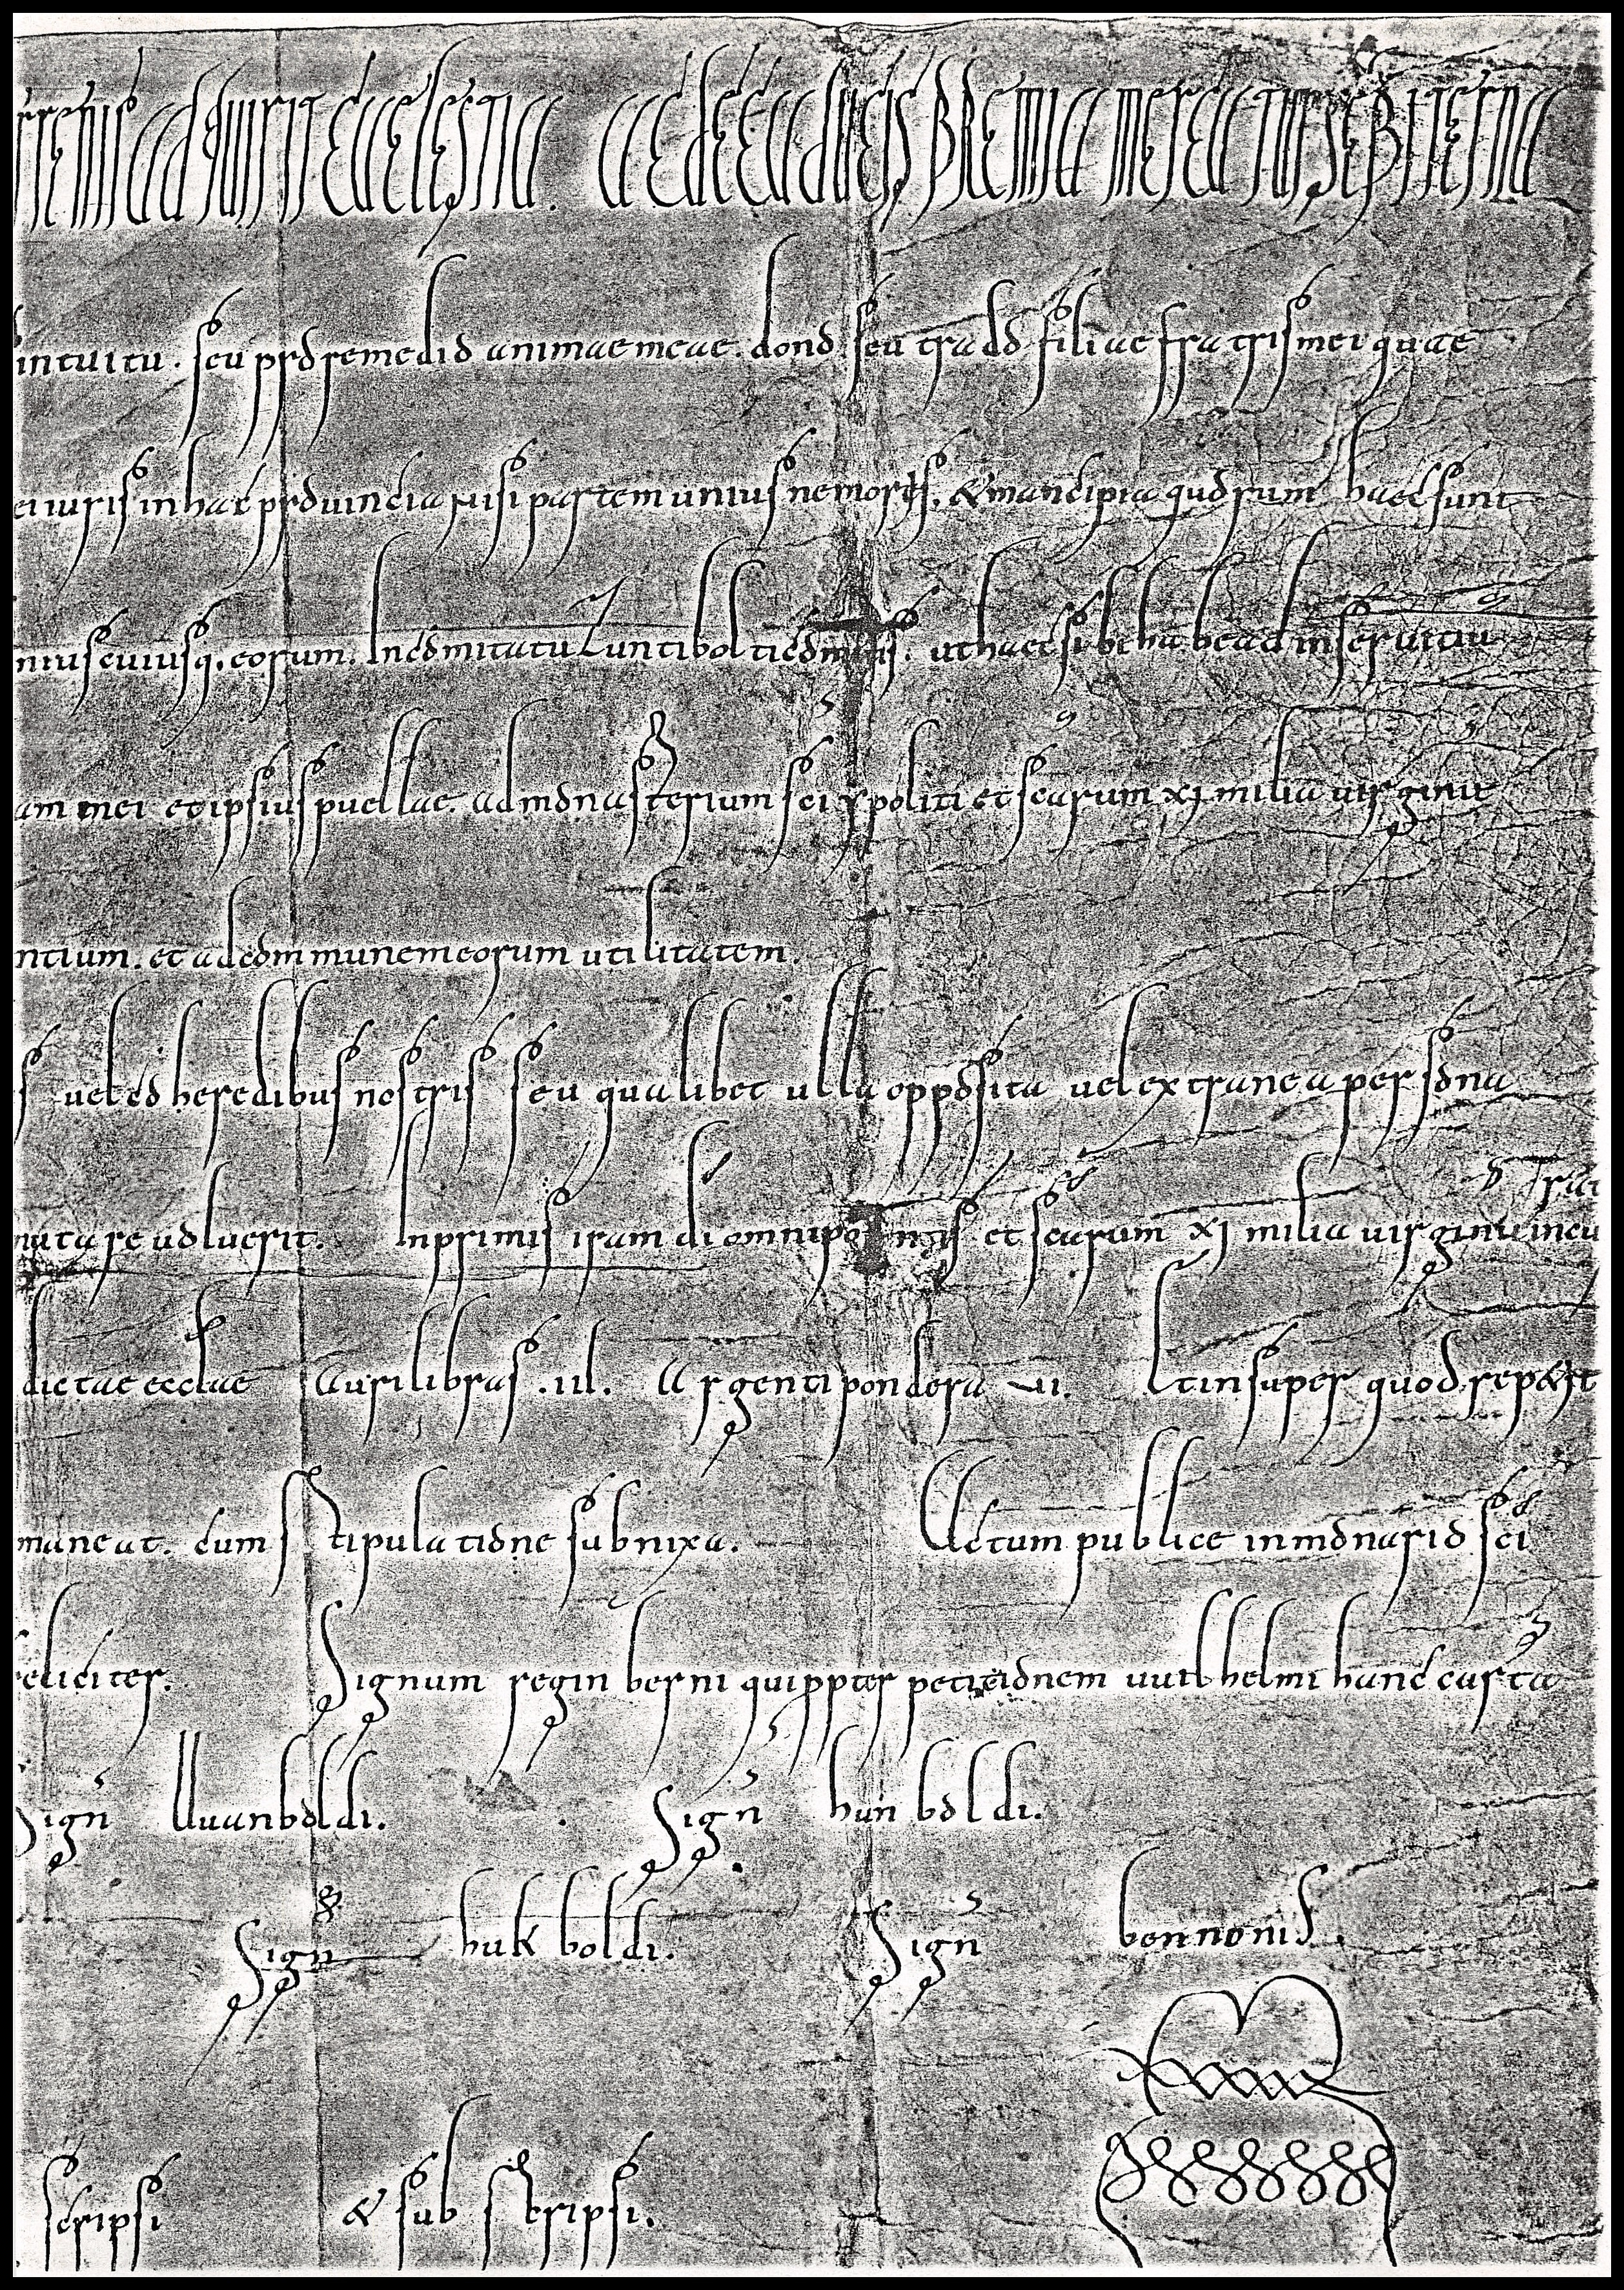 terrenis adquirit caelestia. ac de caducis praemia mercatur sempiterna
intuitu. seu pro remedio animae meae. dono seu trado filiae fratris mei quae
iuris in hac provincia nisi partem unius nemoris. & mancipia quorum haec sunt
cuiusq. eorum. In comitatu Luntibolti comitis. ut haec sibi habead in servitiu
am mei et ipsius puellae. ad monasterium sci ypoliti et scarum xi milia virginu
ntium. et ad communem eorum utilitatem.
s vel coheredibus nostris seu qualibet ulla opposita vel extranea persona
mutare voluerit. Inprimis iram di omnipotentis et scarum xi milia virginu incu
dictae eccłae Auri libras .iii. Argenti pondera vi. Et insuper quod repetit
maneat. cum stipulatione subnixa. Actum publice in monario sci
eliciter. Signum reginberni qui ppter peticionem vuilhelmi hanc carta
Sign Uuanboldi. Sign hunboldi.
Sign hukboldi. Sign bennonis.
scripsi & subscripsi.